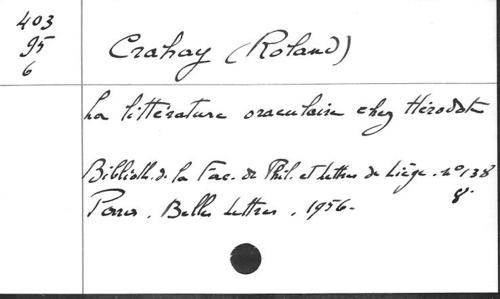 403
95
6
Crahay (Roland)
La littérature oraculaire chez Hérodote
Biblioth. de la Fac. de Phil. et Lettres de Liège. n° 138
8.
Paris. Belles Lettres. 1956.